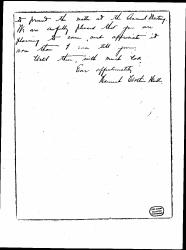 to present the matter at the Annual Meeting.
We are awfully pleased that you are
planning to come, and appreciate it
more than I can tell you.
Until then, with much love,
Ever affectionately,
Hannah Clothier Hull.